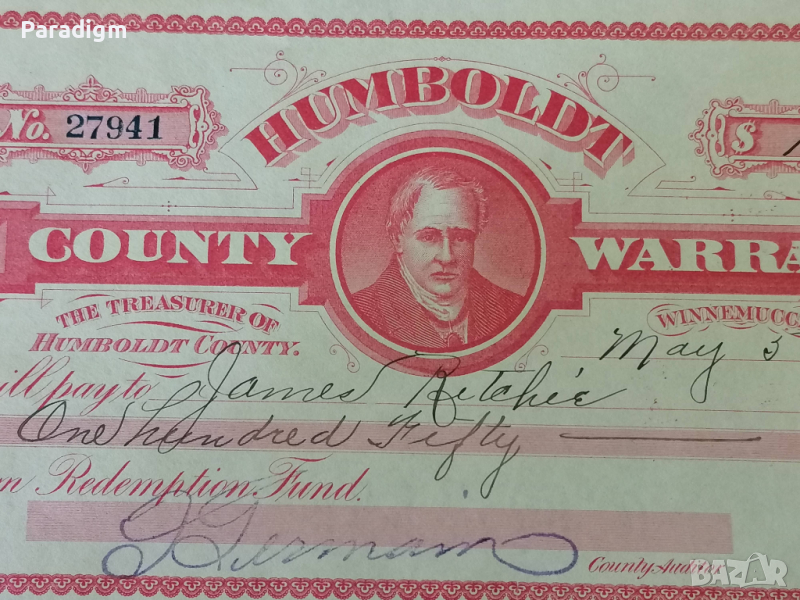 Paradigm
No. 27941
HUMBOLDT
$
COUNTY WARRA
THE TREASURER OF
HUMBOLDT COUNTY.
WINNEMUCC
May 5
ill pay to James Ritchie
One hundred Fifty
n Redemption Fund.
County Auditor
BAZAR